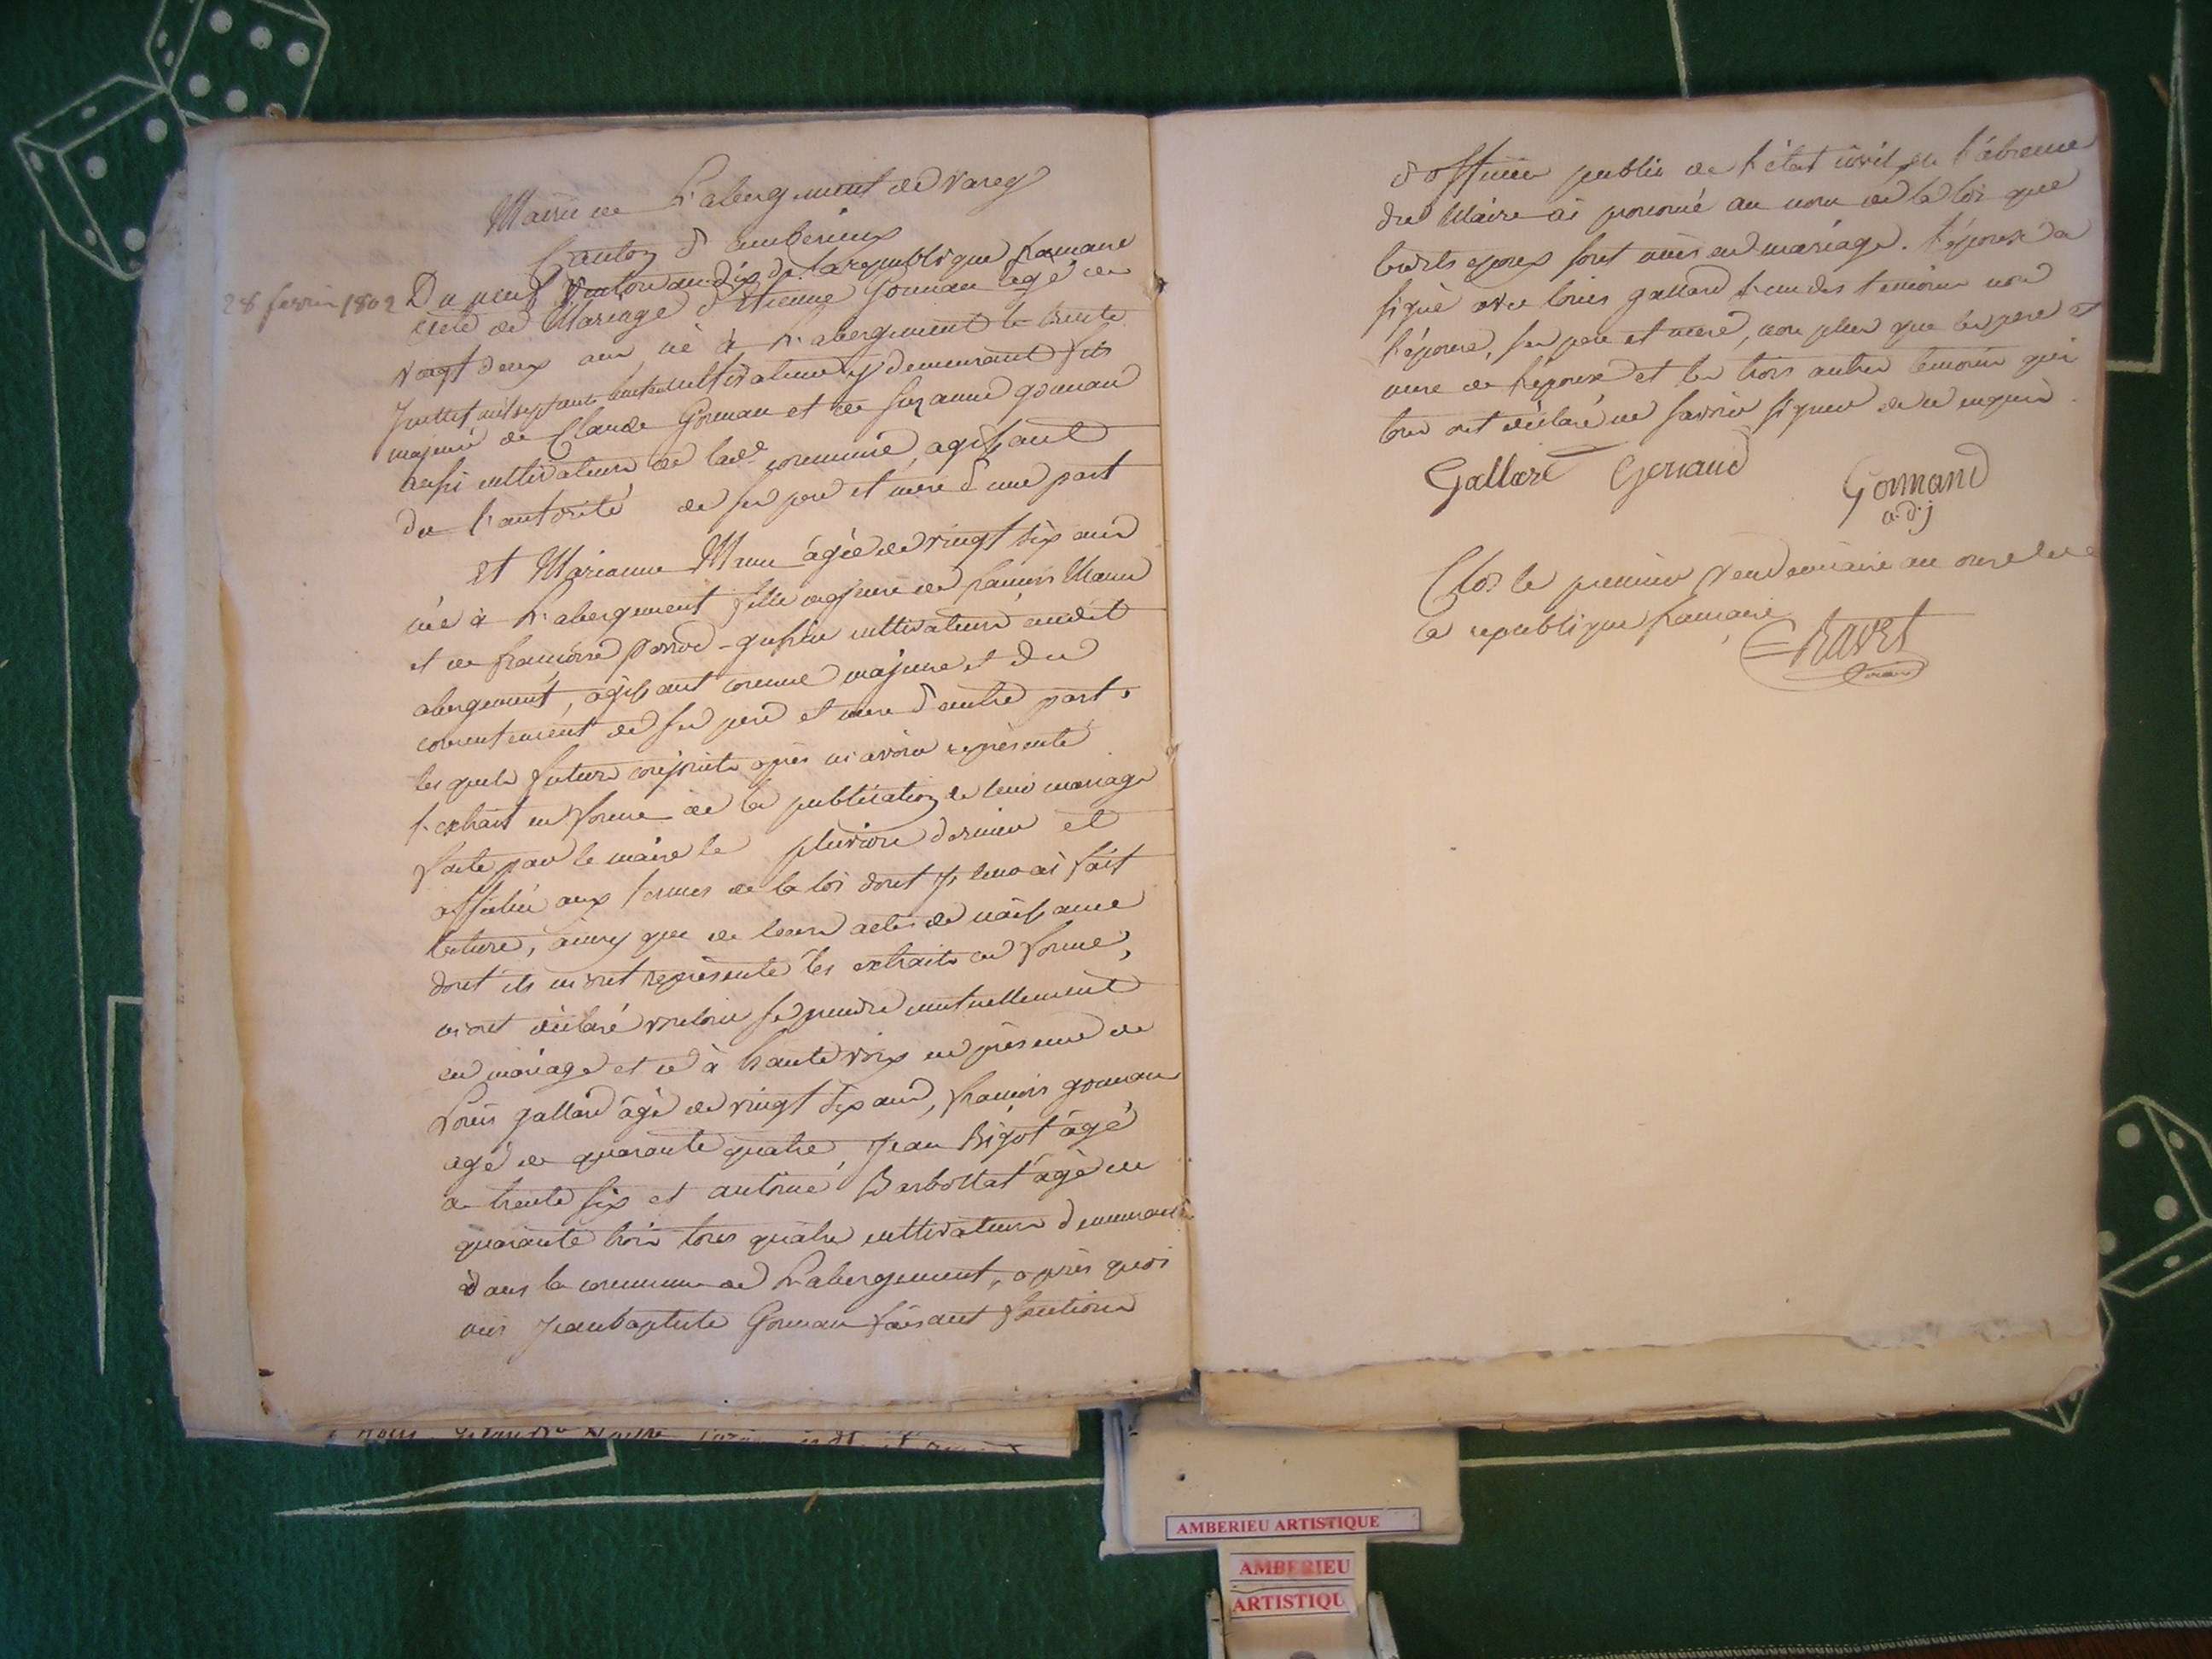 Mairie de L'abergement de Varey
Canton d'amberieux
28 fevrier 1802
Du neuf Ventose an dix de la republique francaise
acte de Mariage d'Etienne Gonnan agé de
vingt deux ans né à L'abergement le trente
Juillet mil sept cent cultivateur y demeurant fils
majeur de Claude Gonnan et de Suzanne gonnan
aussi cultivateurs de lad. commune, agissant
de l'autorité de ses pere et mere d'une part
et Marianne âgée de vingt six ans
née à L'abergement fille majeure de francois
et de francoise cultivateurs audit
abergement, agissant comme majeure et du
consentement de ses pere et mere d'autre part,
les quels futurs conjoints après m'avoir représenté
l'extrait en forme de la publication de leur mariage
faite par le maire le pluviose dernier et
affichée aux termes de la loi dont je leur ai fait
lecture, ainsy que de leurs actes de naissance
dont ils m'ont représenté les extraits en forme,
m'ont déclaré vouloir se prendre mutuellement
en mariage et ce à haute voix en présence de
Louis gallard âgé de vingt six ans, francois gonnan
agé de quarante quatre, Jean Bigot âgé
de trente six et antoine Barbollat âgé de
quarante trois tous quatre cultivateurs demeurant
dans la commune de L'abergement, après quoi
moi Jean baptiste Gonnan faisant fonctions
d'officier public de l'état civil en l'absence
du Maire ai prononcé au nom de la loi que
lesdits epoux sont unis en mariage. l'époux a
signé avec louis gallard l'un des temoins non
l'épouse, ses pere et mere, non plus que les pere et
mere de l'époux et les trois autres temoins qui
tous ont déclaré ne savoir signer de ce enquis
Gallard Gonand Gonnand
a.d.j
Clos le premier vendemiaire an onze de
la republique francaise
Ravet
maire
AMBERIEU ARTISTIQUE
AMBERIEU
ARTISTIQU